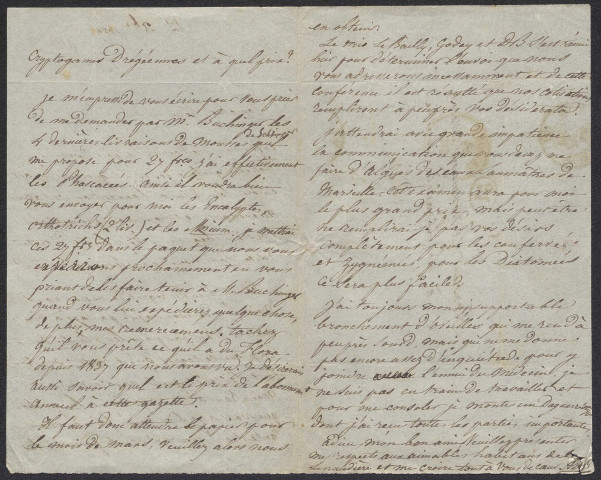 Cryptogames Drégéennes et à quel prix?
je m'empresse de vous écrire pour vous prier
de me demander par Mr Buchinger les
de Schimper
4 dernières livraisons de Mousses qu'il
me propose pour 27 frcs j'ai effectivement
les Phascacées. Ainsi il voudra bien
vous envoyer pour moi les Encalypta
orthotrichs (2 liv.) et les Mnium, je mettrai
ces 27 frs dans le paquet que nous vous
prochainement en vous
priant de les faire tenir à Mr Buchinger
quand vous lui expédierez quelque chose,
de plus, mes remerciemens, tachez
qu'il vous prête ce qu'il a du Flora
depuis 1837 que nous avons vu. Je desirerais
aussi savoir quel est le prix de l'abonnement
annuel à cette gazette?
Il faut donc attendre le papier pour
le mois de mars, veuillez alors nous
en obtenir.
Le trio Le Bailly, Godey et DB s'est réuni
hier pour déterminer l'envoi que nous
vous adresserons incessamment et de cette
conférence il est résulté que nos cotisations
rempliront à peu près vos desiderata.
j'attendrai avec grand impatience
la communication que vous devez me
faire d'Algues des eaux saumâtres de
Marseille, cette année aura pour moi
le plus grand prix, mais peut être
ne remplirai-je pas vos désirs
complètement pour les conferves
et zygnémées, pour les Diatomées
ce sera plus facile.
J'ai toujours mon insupportable
bronchement d'oreilles qui me rend à
peu près sourd, mais qui ne me donne
pas encore assez d'inquiétude pour y
joindre l'ennui du Médecin, je
ne suis pas en train de travailler et
pour me consoler je monte un Daguerréotype
dont j'ai reçu toutes les parties importantes.
Adieu mon bon ami veuillez présenter
mes respects aux aimables habitans de la
et me croire tout à vous de cœur